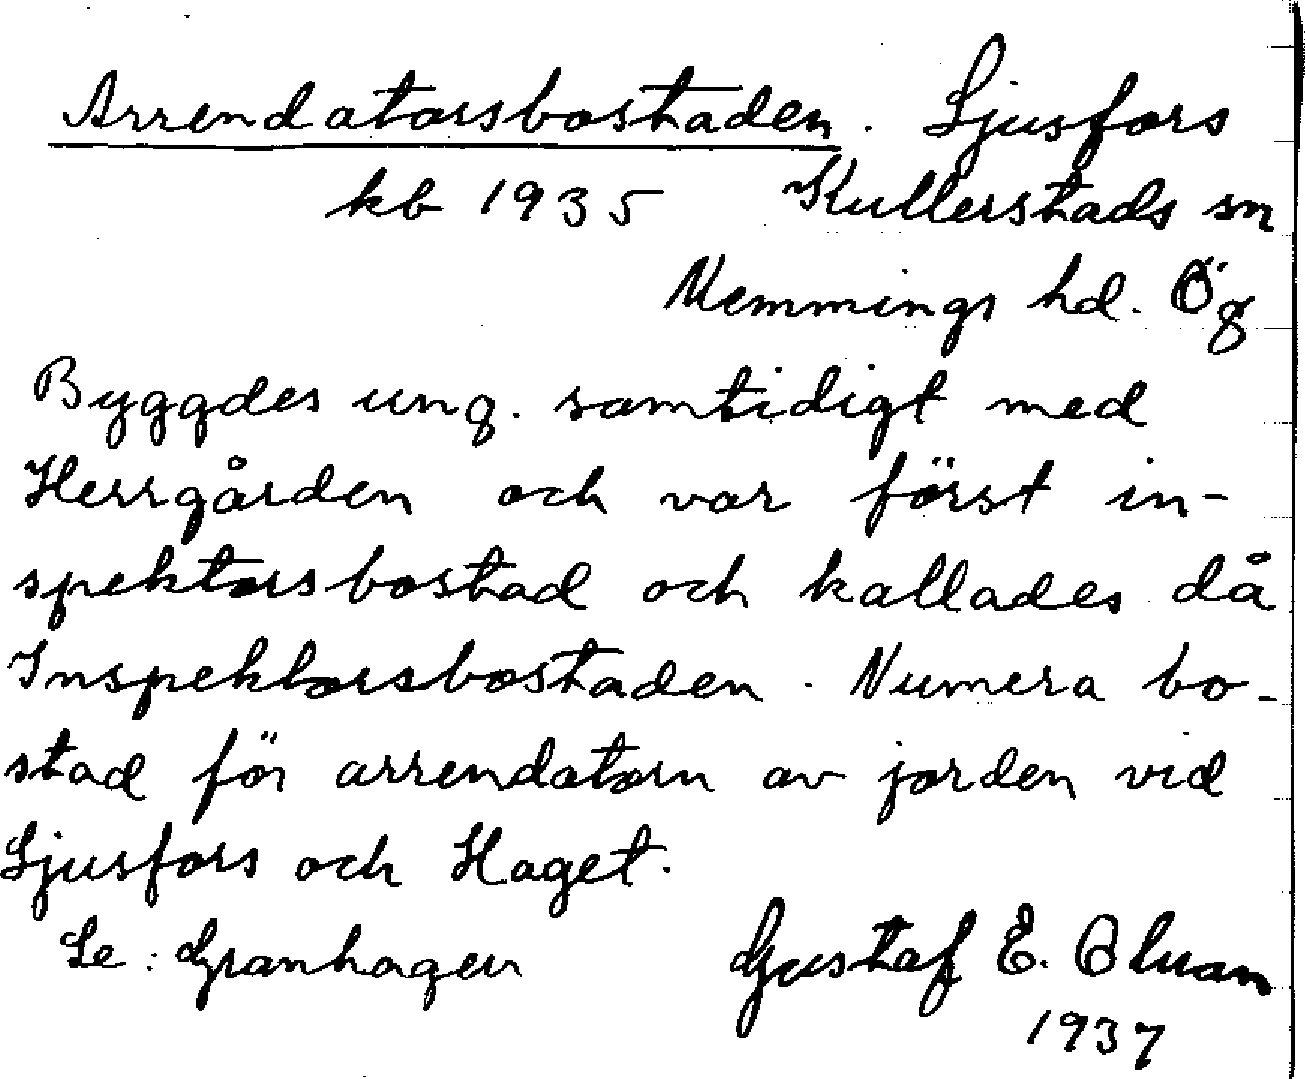 Arrendatorsbostaden. Ljusfors
kb 1935 Kullerstads sn
Memmings hd. Ög
Byggdes ung. samtidigt med
Herrgården och var först in-
spektorsbostad och kallades då
Inspektorsbostaden. Numera bo-
stad för arrendatorn av jorden vid
Ljusfors och Haget.
Se: Granhagen Gustaf E.
1937